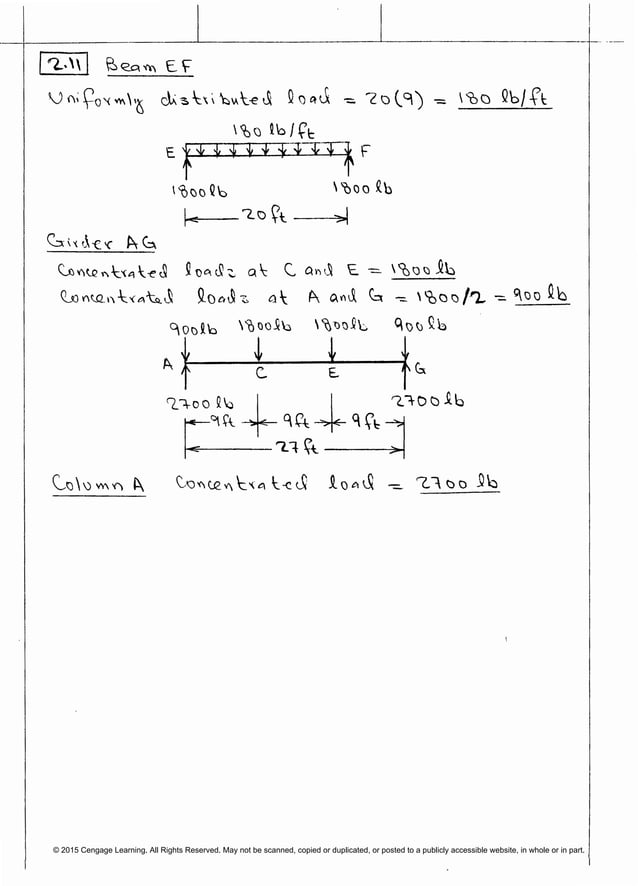 2.11 Beam EF
Uniformly distributed load = 20(9) = 180 lb/ft
180 lb/ft
E F
1800 lb 1800 lb
20 ft
Girder AG
Concentrated loads at C and E = 1800 lb
Concentrated loads at A and G = 1800/2 = 900 lb
900 lb 1800 lb 1800 lb 900 lb
A C E G
2700 lb 2700 lb
9 ft 9 ft 9 ft
27 ft
Column A Concentrated load = 2700 lb
© 2015 Cengage Learning. All Rights Reserved. May not be scanned, copied or duplicated, or posted to a publicly accessible website, in whole or in part.